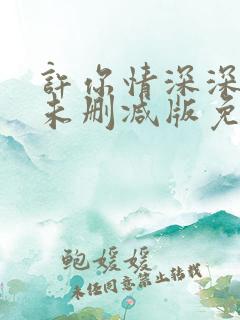 許你情深深
未删减版免
鲍媛媛
未经同意禁止转载